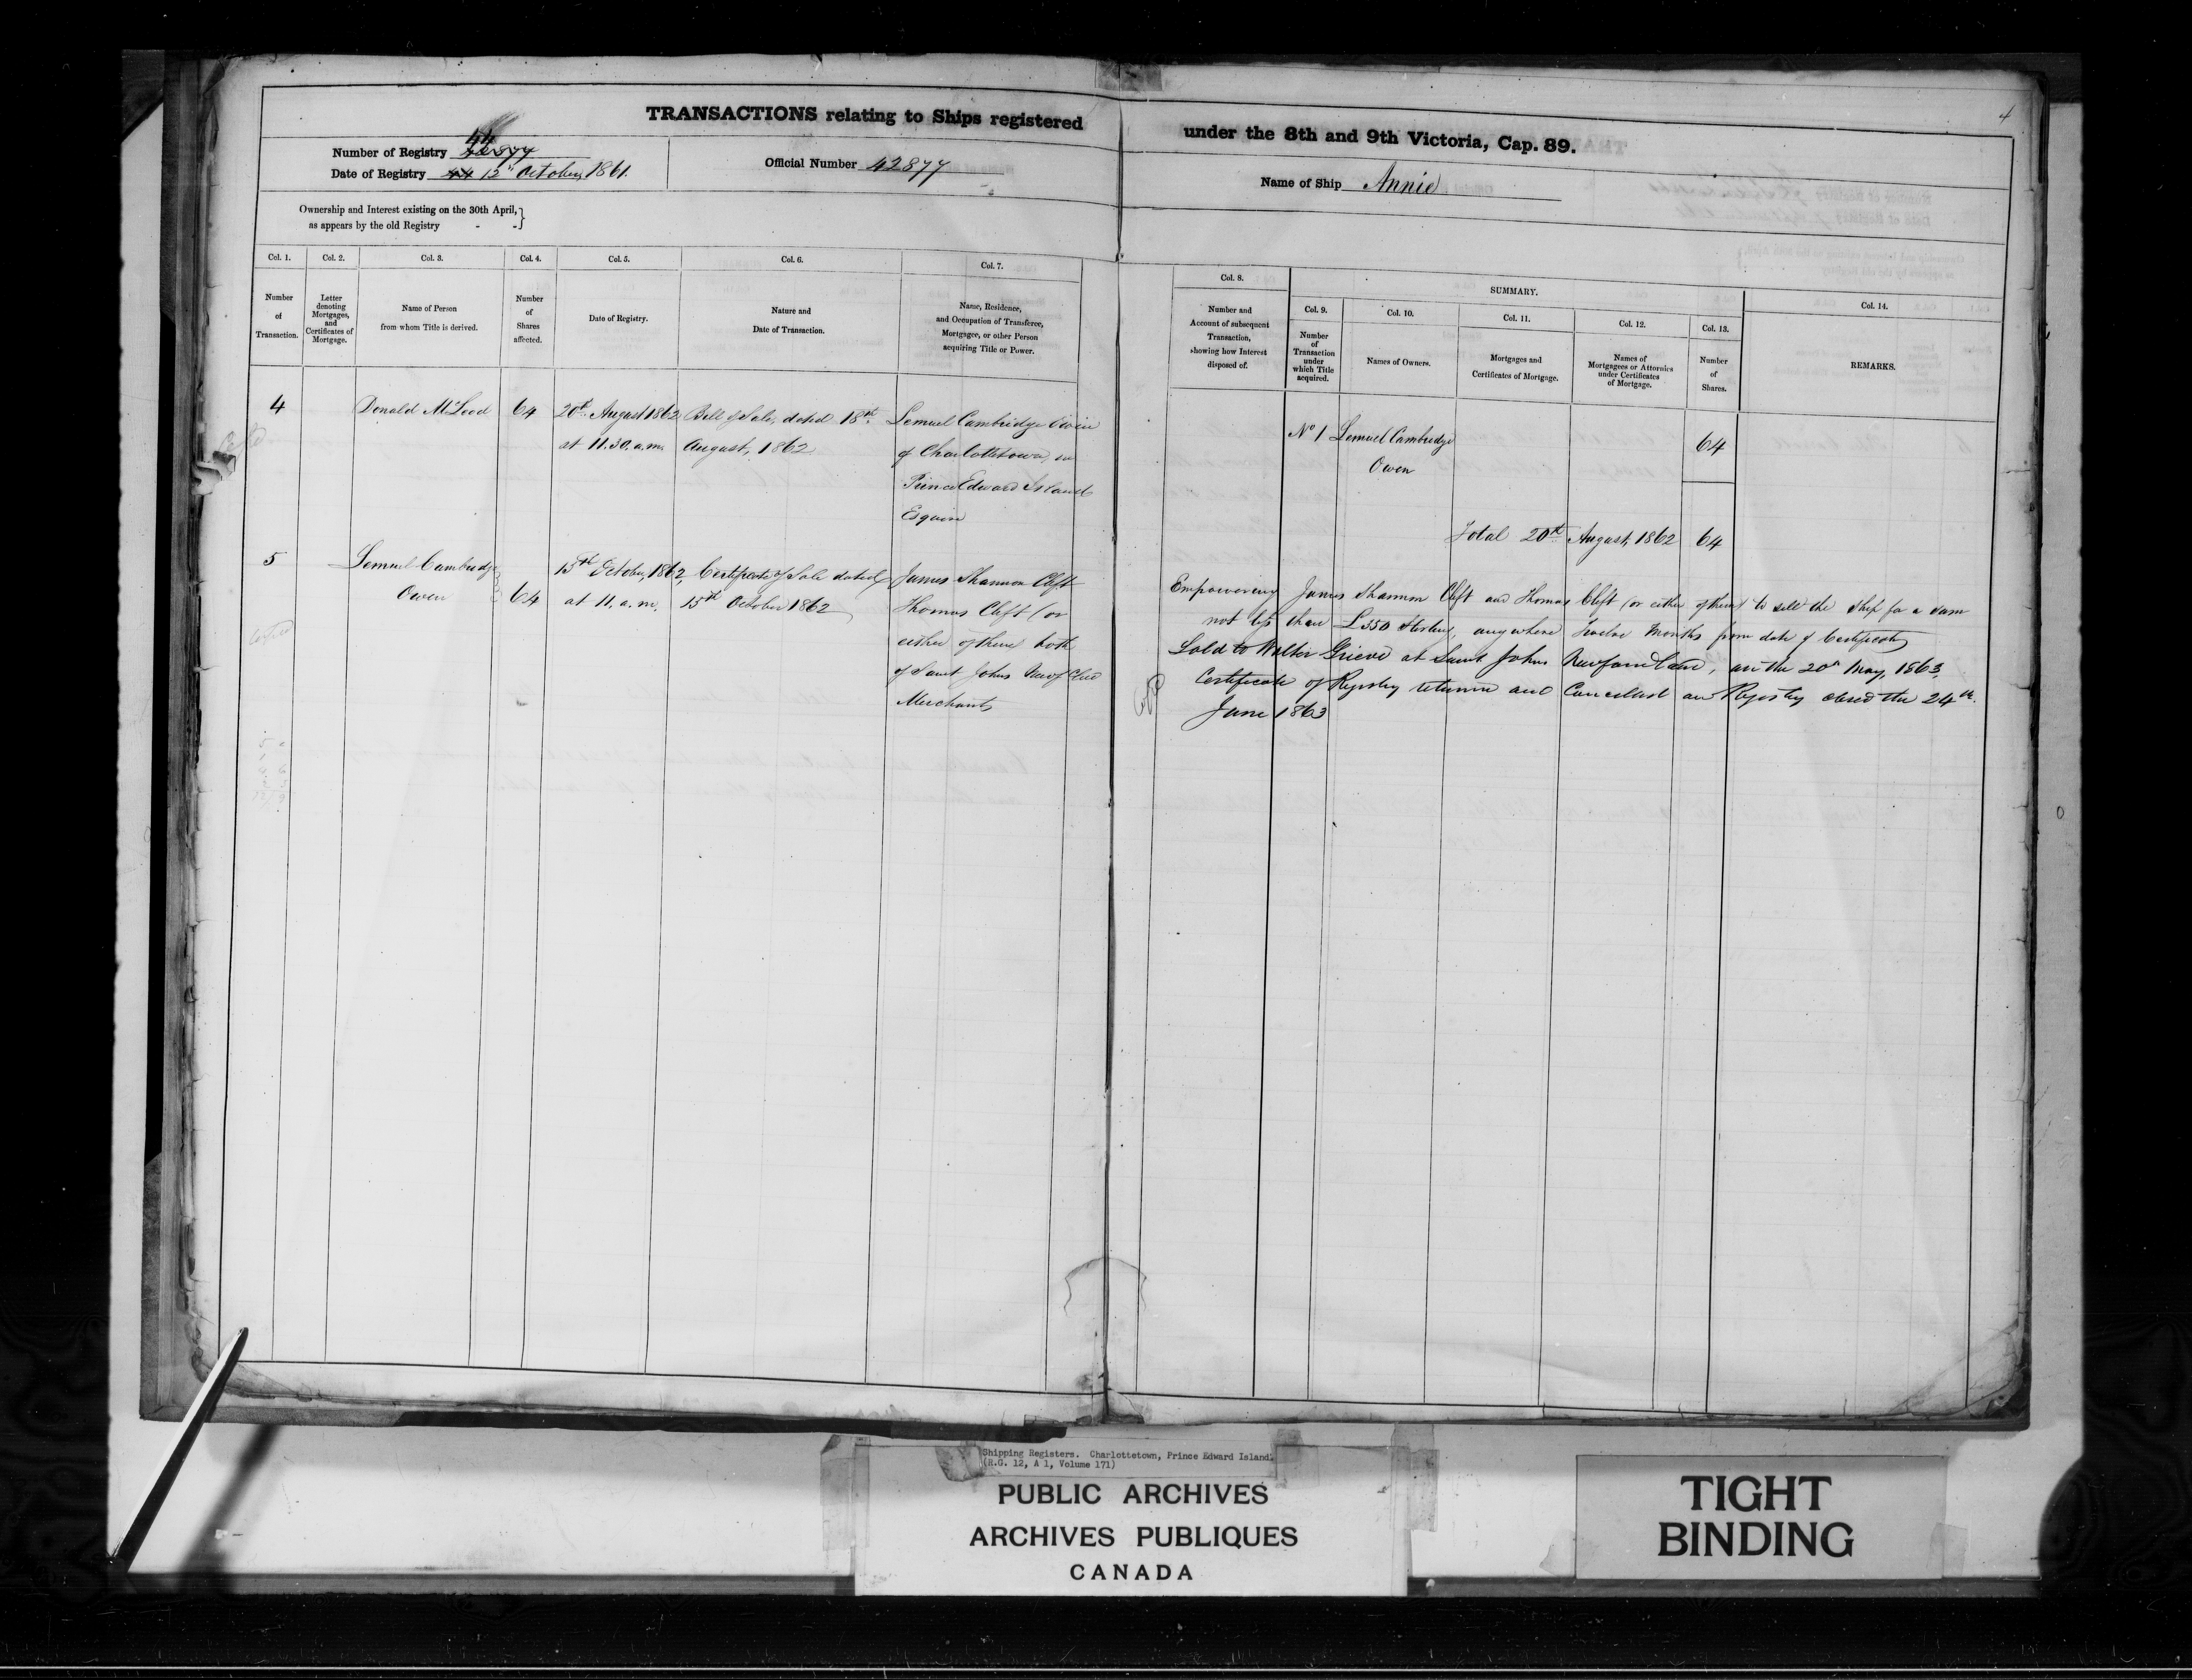 TRANSACTIONS relating to Ships registered under the 8th and 9th Victoria, Cap. 89.
4
44
Number of Registry 42877
Date of Registry 44 12th October, 1861.
Official Number 42877
Name of Ship Annie
Ownership and Interest existing on the 30th April,
as appears by the old Registry - - }
Col. 1. Col. 2. Col. 3. Col. 4. Col. 5. Col. 6. Col. 7.
Number of Transaction.
Letter denoting Mortgages, and Certificates of Mortgage.
Name of Person from whom Title is derived.
Number of Shares affected.
Date of Registry.
Nature and Date of Transaction.
Name, Residence, and Occupation of Transferee, Mortgagee, or other Person acquiring Title or Power.
Col. 8.
Number and Account of subsequent Transaction, showing how Interest disposed of.
SUMMARY.
Col. 9. Col. 10. Col. 11. Col. 12. Col. 13. Col. 14.
Number of Transaction under which Title acquired.
Names of Owners.
Mortgages and Certificates of Mortgage.
Names of Mortgagees or Attornies under Certificates of Mortgage.
Number of Shares.
REMARKS.
4
Donald McLeod
64
20th August 1862
at 11.30. a.m.
Bill of Sale, dated 18th
August, 1862
Lemuel Cambridge Owen
of Charlottetown, in
Prince Edward Island
Esquire
No 1 Lemuel Cambridge
Owen
64
Total 20th August, 1862 64
5
Lemuel Cambridge
Owen
64
15th October, 1862,
at 11. a.m.
Certificate of Sale dated
15th October 1862
James Shannon Clift
Thomas Clift (or
either of them both
of Saint Johns Newfdland
Merchants
Empowering James Shannon Clift and Thomas Clift (or either of them) to sell the Ship for a sum
not less than £350 Sterling, anywhere Twelve Months from date of Certificate
Sold to Walter Grieve at Saint Johns Newfoundland, on the 20th May, 1863,
Certificate of Registry returned and Cancelled and Registry closed the 24th
June 1863
Shipping Registers. Charlottetown, Prince Edward Island.
(R.G. 12, A 1, Volume 171)
PUBLIC ARCHIVES
ARCHIVES PUBLIQUES
CANADA
TIGHT
BINDING